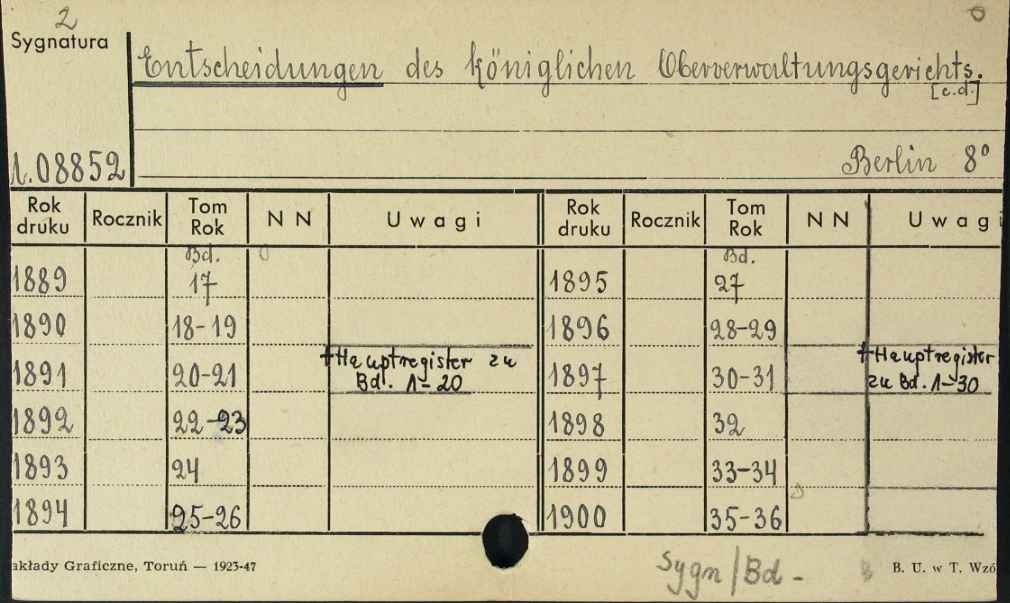 2
Sygnatura
Entscheidungen des königlichen Oberverwaltungsgerichts.
[c.d.]
1.08852
Berlin 8°
Rok druku Rocznik Tom Rok NN Uwagi Rok druku Rocznik Tom Rok NN Uwagi
Bd. Bd.
1889 17 1895 27
1890 18-19 1896 28-29
1891 20-21 +Hauptregister zu Bd. 1-20 1897 30-31 +Hauptregister zu Bd. 1-30
1892 22-23 1898 32
1893 24 1899 33-34
1894 25-26 1900 35-36
akłady Graficzne, Toruń — 1923-47
Sygn/Bd -
B. U. w T. Wzó